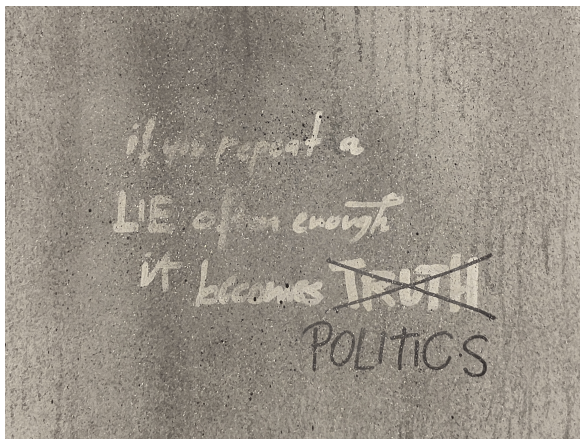 if you repeat a
LIE often enough
it becomes TRUTH
POLITICS